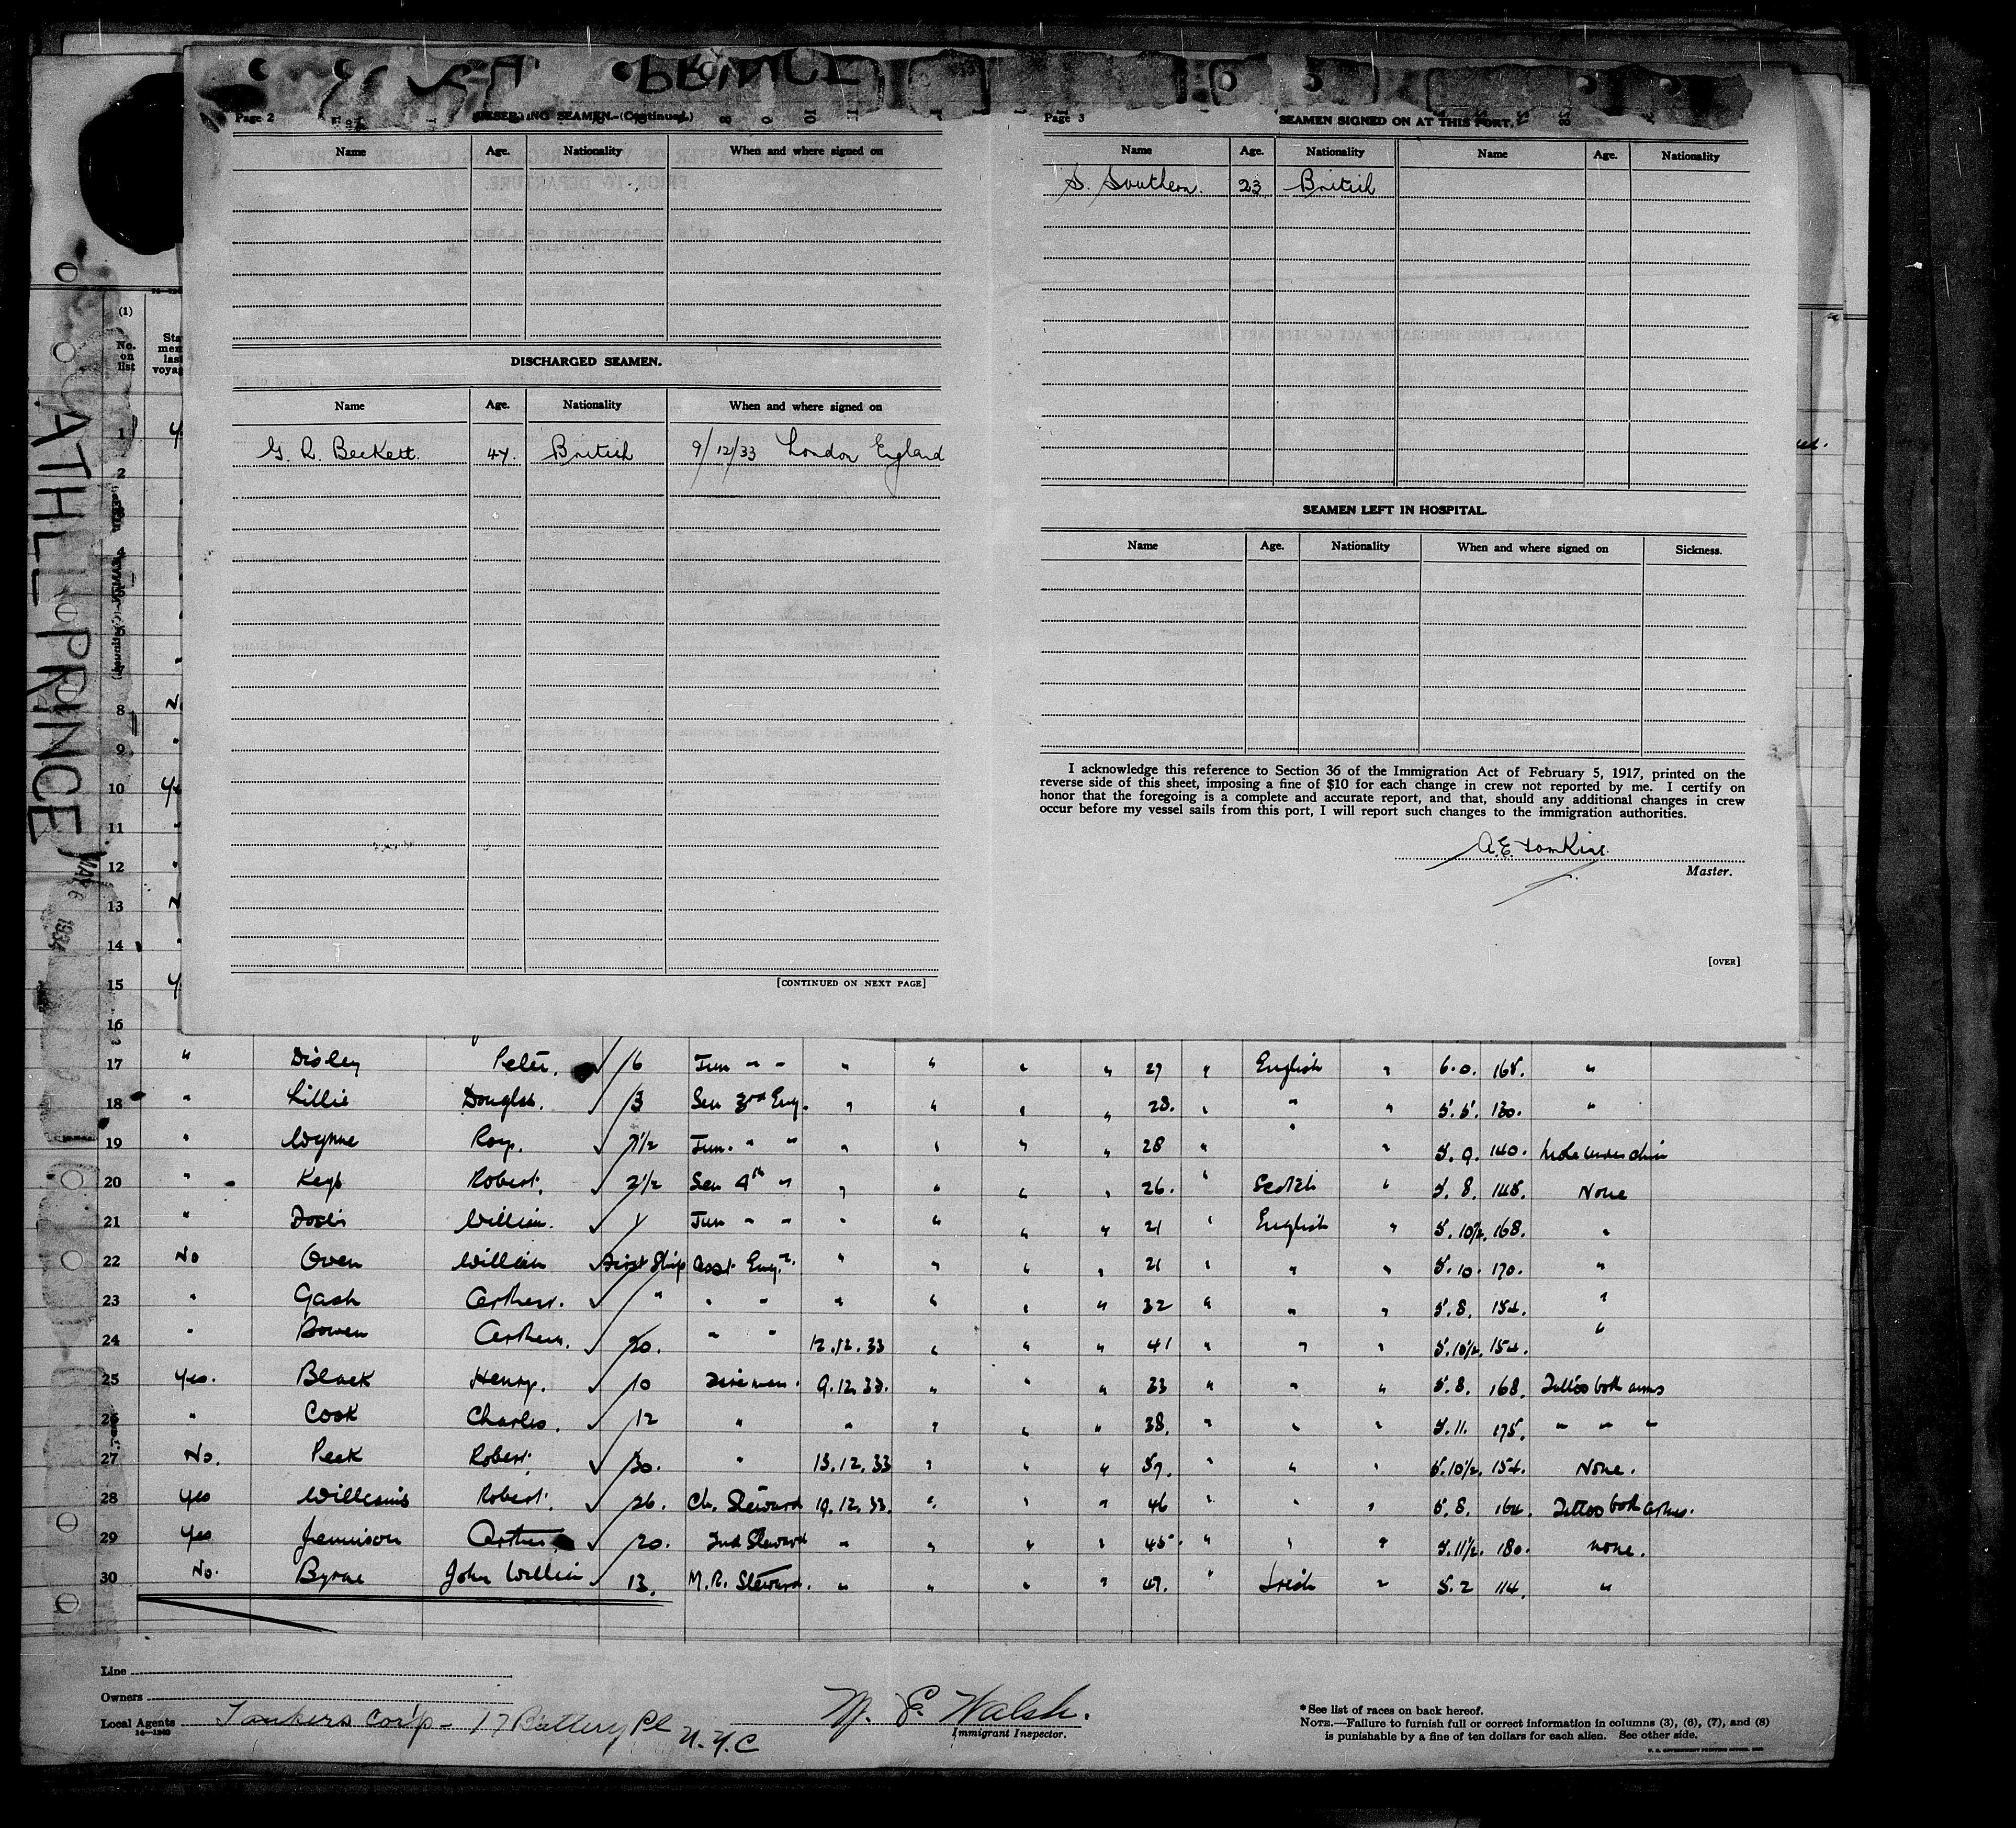 PRINCE
Page 2
DESERTING SEAMEN—(Continued.)
Name Age. Nationality When and where signed on
DISCHARGED SEAMEN.
Name Age. Nationality When and where signed on
G. R. Beckett. 47. British 9/12/33 London England
[CONTINUED ON NEXT PAGE]
Page 3
SEAMEN SIGNED ON AT THIS PORT.
Name Age. Nationality Name Age. Nationality
S. Southern. 23 British
SEAMEN LEFT IN HOSPITAL.
Name Age. Nationality When and where signed on Sickness.
I acknowledge this reference to Section 36 of the Immigration Act of February 5, 1917, printed on the
reverse side of this sheet, imposing a fine of $10 for each change in crew not reported by me. I certify on
honor that the foregoing is a complete and accurate report, and that, should any additional changes in crew
occur before my vessel sails from this port, I will report such changes to the immigration authorities.
A.E. Tomkins.
Master.
[OVER]
ATHEL PRINCE
MAY 6 1934
(1)
No.
on
list
1
2
8
9
10
11
12
13
14
15
16
17 " Disley Peter. 6 Jun " " " " " " 27 " English " 6.0. 168. "
18 " Lillie Douglas. 13 Sen 3rd Eng. " " " " 28. " " " 5.5. 130. "
19 " Wynne Roy. 7½ Jun. " " " " " " 28 " " " 5.9. 140. Mole under chin
20 " Keys Robert. 2½ Sen 4th " " " " " 26. " Scotch " 5.8. 148. None
21 " William. Jun " " " " " " 21 " English " 5.10½. 168. "
22 No Owen William First Ship Asst Engr. " " " " 21 " " " 5.10. 170. "
23 " Gash Arthur. " " " " " " " 32 " " " 5.8. 154. "
24 " Bowen Arthur. 20. " " 12.12.33 " " " 41 " " " 5.10½. 154. "
25 Yes. Black Henry. 10 Fireman. 9.12.33. " " " 33 " " " 5.8. 168. Tattoo both arms
26 " Cook Charles. 12 " " " " " 38. " " " 5.11. 175. " " "
27 No. Peek Robert. 30. " 13.12.33 " " " 57. " " " 5.10½. 154. None.
28 Yes Williams Robert. 26. Ch. Steward 19.12.33. " " " 46 " " " 5.8. 164. Tattoo both arms.
29 Yes Jennison Arthur 20. 2nd Steward " " " " 45. " " " 5.11½. 180. none.
30 No. Byrne John William 13. M.R. Steward. " " " " 47. " Irish " 5.2 114. "
Line
Owners
Local Agents Tankers Corp - 17 Battery Pl N.Y.C
14—1240
M. E. Walsh.
Immigrant Inspector.
* See list of races on back hereof.
NOTE.—Failure to furnish full or correct information in columns (3), (6), (7), and (8)
is punishable by a fine of ten dollars for each alien. See other side.
U. S. GOVERNMENT PRINTING OFFICE